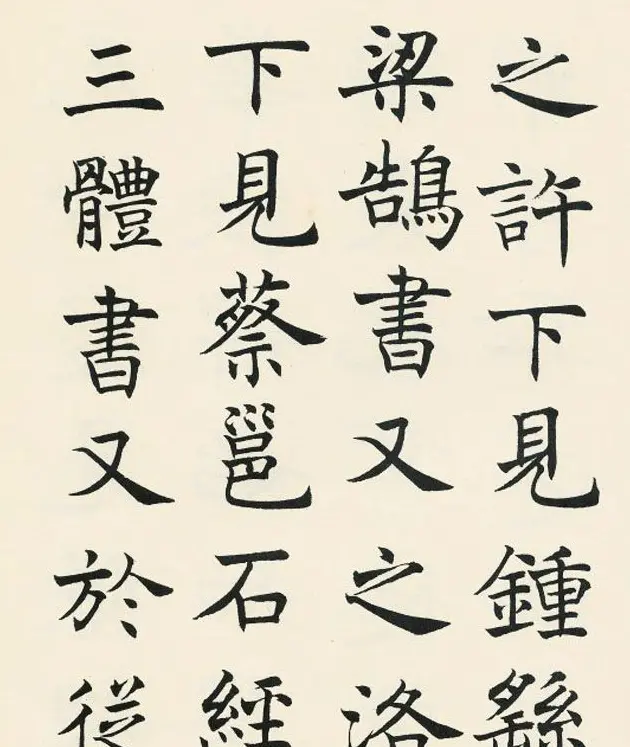 之許下見鍾繇
梁鵠書又之洛
下見蔡邕石經
三體書又於從